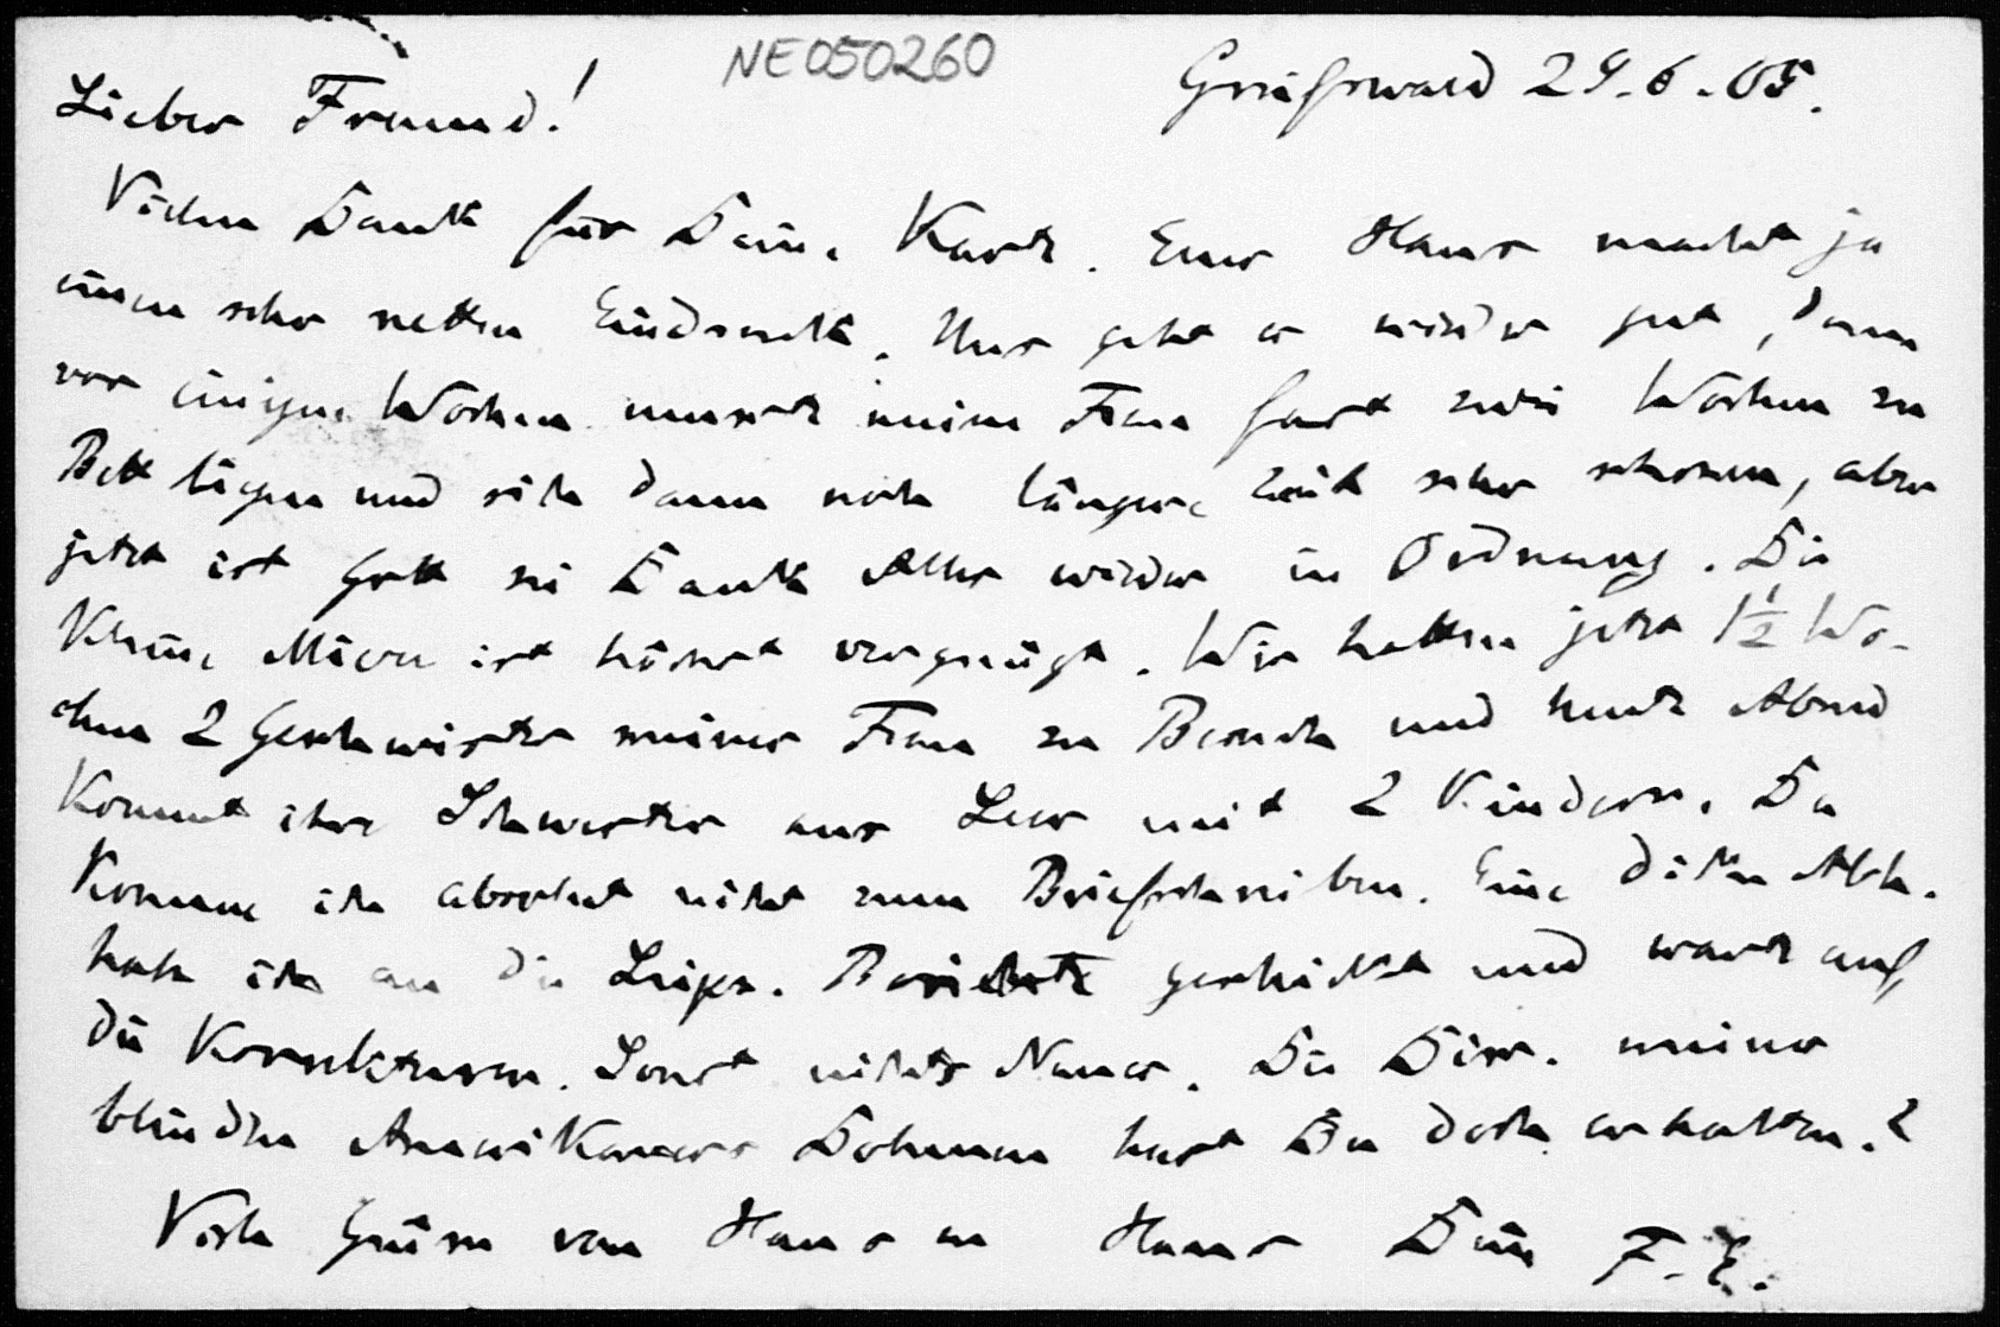 NE050260
Greifswald 29.6.05.
Lieber Freund!
Vielen Dank für Deine Karte. Euer Haus macht ja
einen sehr netten Eindruck. Uns geht es wieder gut, denn
vor einigen Wochen musste meine Frau fast zwei Wochen zu
Bett liegen und sich dann noch längere Zeit sehr schonen, aber
jetzt ist Gott sei Dank Alles wieder in Ordnung. Die
Kleine ist höchst vergnügt. Wir hatten jetzt 1½ Wo-
chen 2 Geschwister meiner Frau zu Besuch und heute Abend
kommt ihre Schwester aus Leer mit 2 Kindern. Da
komme ich absolut nicht zum Briefschreiben. Eine dicke Abh.
habe ich an die Leipz. Berichte geschickt und warte auf
die Korrekturen. Sonst nichts Neues. Die Diss. meines
blinden Amerikaners hast Du doch erhalten?
Viele Grüsse von Haus zu Haus Dein F. E.